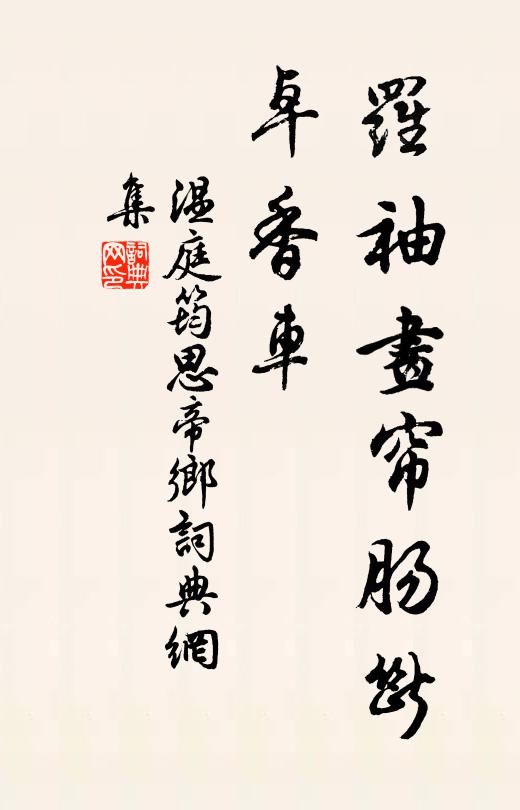 羅袖畫帘肠斷
卓香車
温庭筠思帝鄉詞典網
集
詞典網印